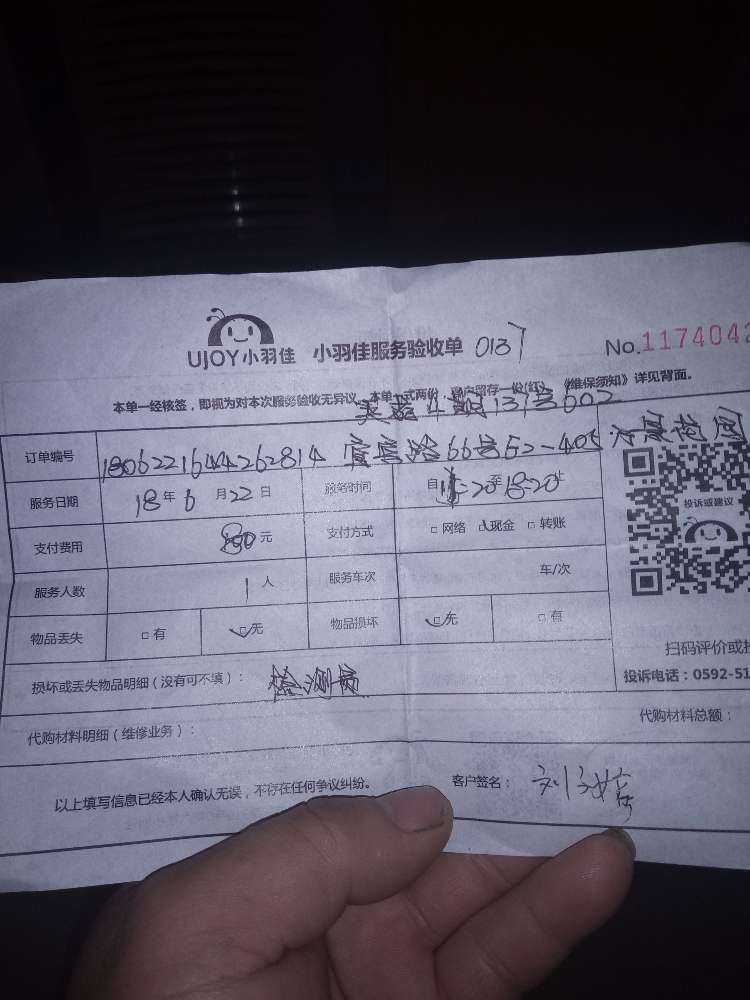 UJOY小羽佳 小羽佳服务验收单 0137 No.1174042
本单一经核签，即视为对本次服务验收无异议。本单一式两份，客户留存一份(红)。《维保须知》详见背面。
137号602
订单编号 1806221644262814 宜宾路66号52-405
服务日期 18年6月22日 服务时间 自 -20至18-20止
支付费用 元 支付方式 □网络 ☑现金 □转账
投诉或建议
服务人数 1人 服务车次 车/次
物品丢失 □有 ☑无 物品损坏 ☑无 □有
扫码评价或投
损坏或丢失物品明细（没有可不填）： 检测费
投诉电话：0592-51
代购材料明细（维修业务）： 代购材料总额：
以上填写信息已经本人确认无误，不存在任何争议纠纷。 客户签名： 刘